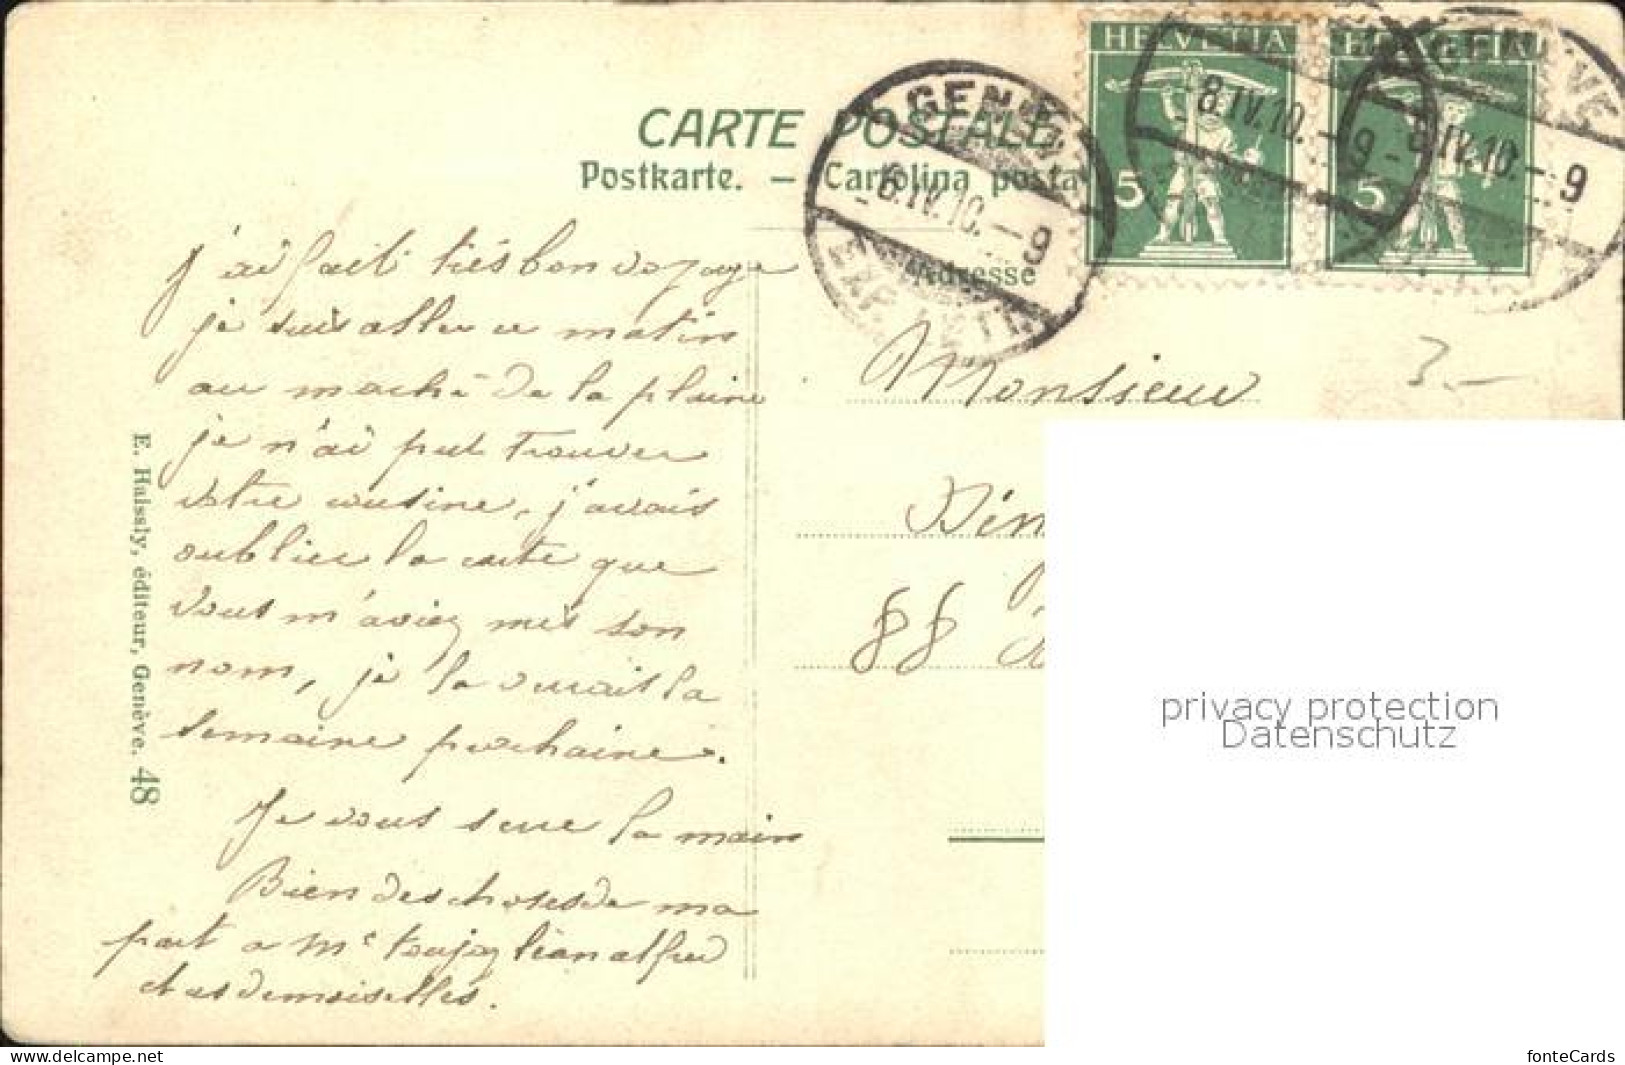 CARTE POSTALE
Postkarte. — Cartolina posta
Adresse
HELVETIA
5
HELVETIA
5
GENÈVE
6.IV.10.–9
EXP. LETT.
8.IV.10.–9
8.IV.10.–9
GENÈVE
3.–
j'ai fait très bon voyage
je suis aller ce matin
au maché de la plaine
je n'ai put trouver
votre cousine, j'avais
oublier la carte que
vous m'aviez mis son
nom, je la verrait la
semaine prochaine.
Je vous serre la main
Bien des choses de ma
part a Me
et ces demoiselles.
Monsieur
88
E. Haissly, éditeur, Genève. 48
privacy protection
Datenschutz
www.fonte-cards.com
fonteCards